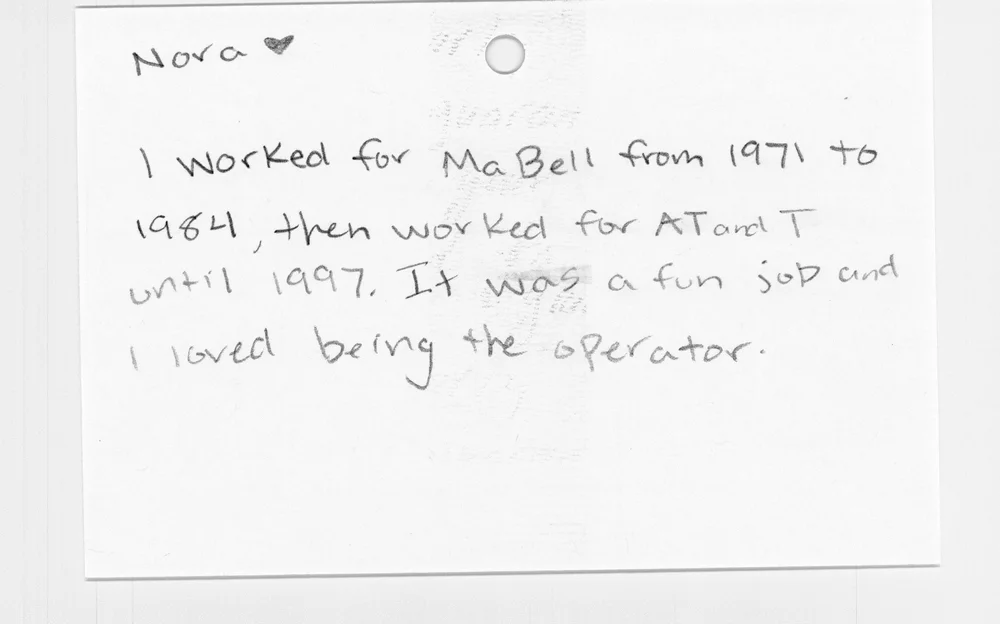 Nora ♥
I worked for Ma Bell from 1971 to
1984, then worked for AT and T
until 1997. It was a fun job and
I loved being the operator.